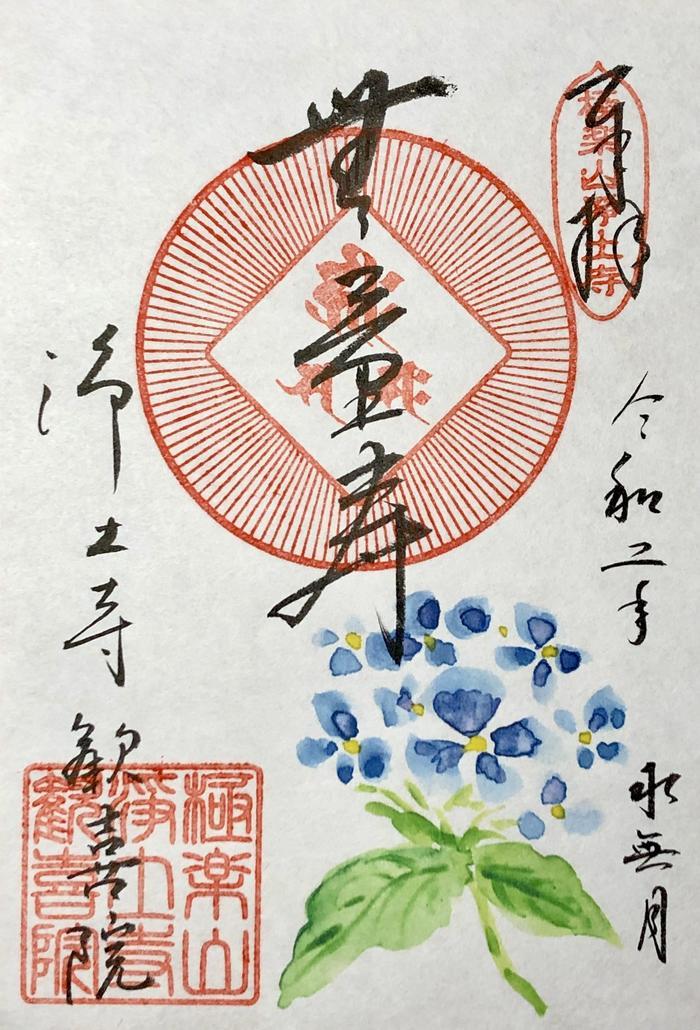 奉拝
極楽山浄土寺
令和二年
水無月
無量寿
浄土寺
歓喜院
極楽山
浄土寺
歡喜院